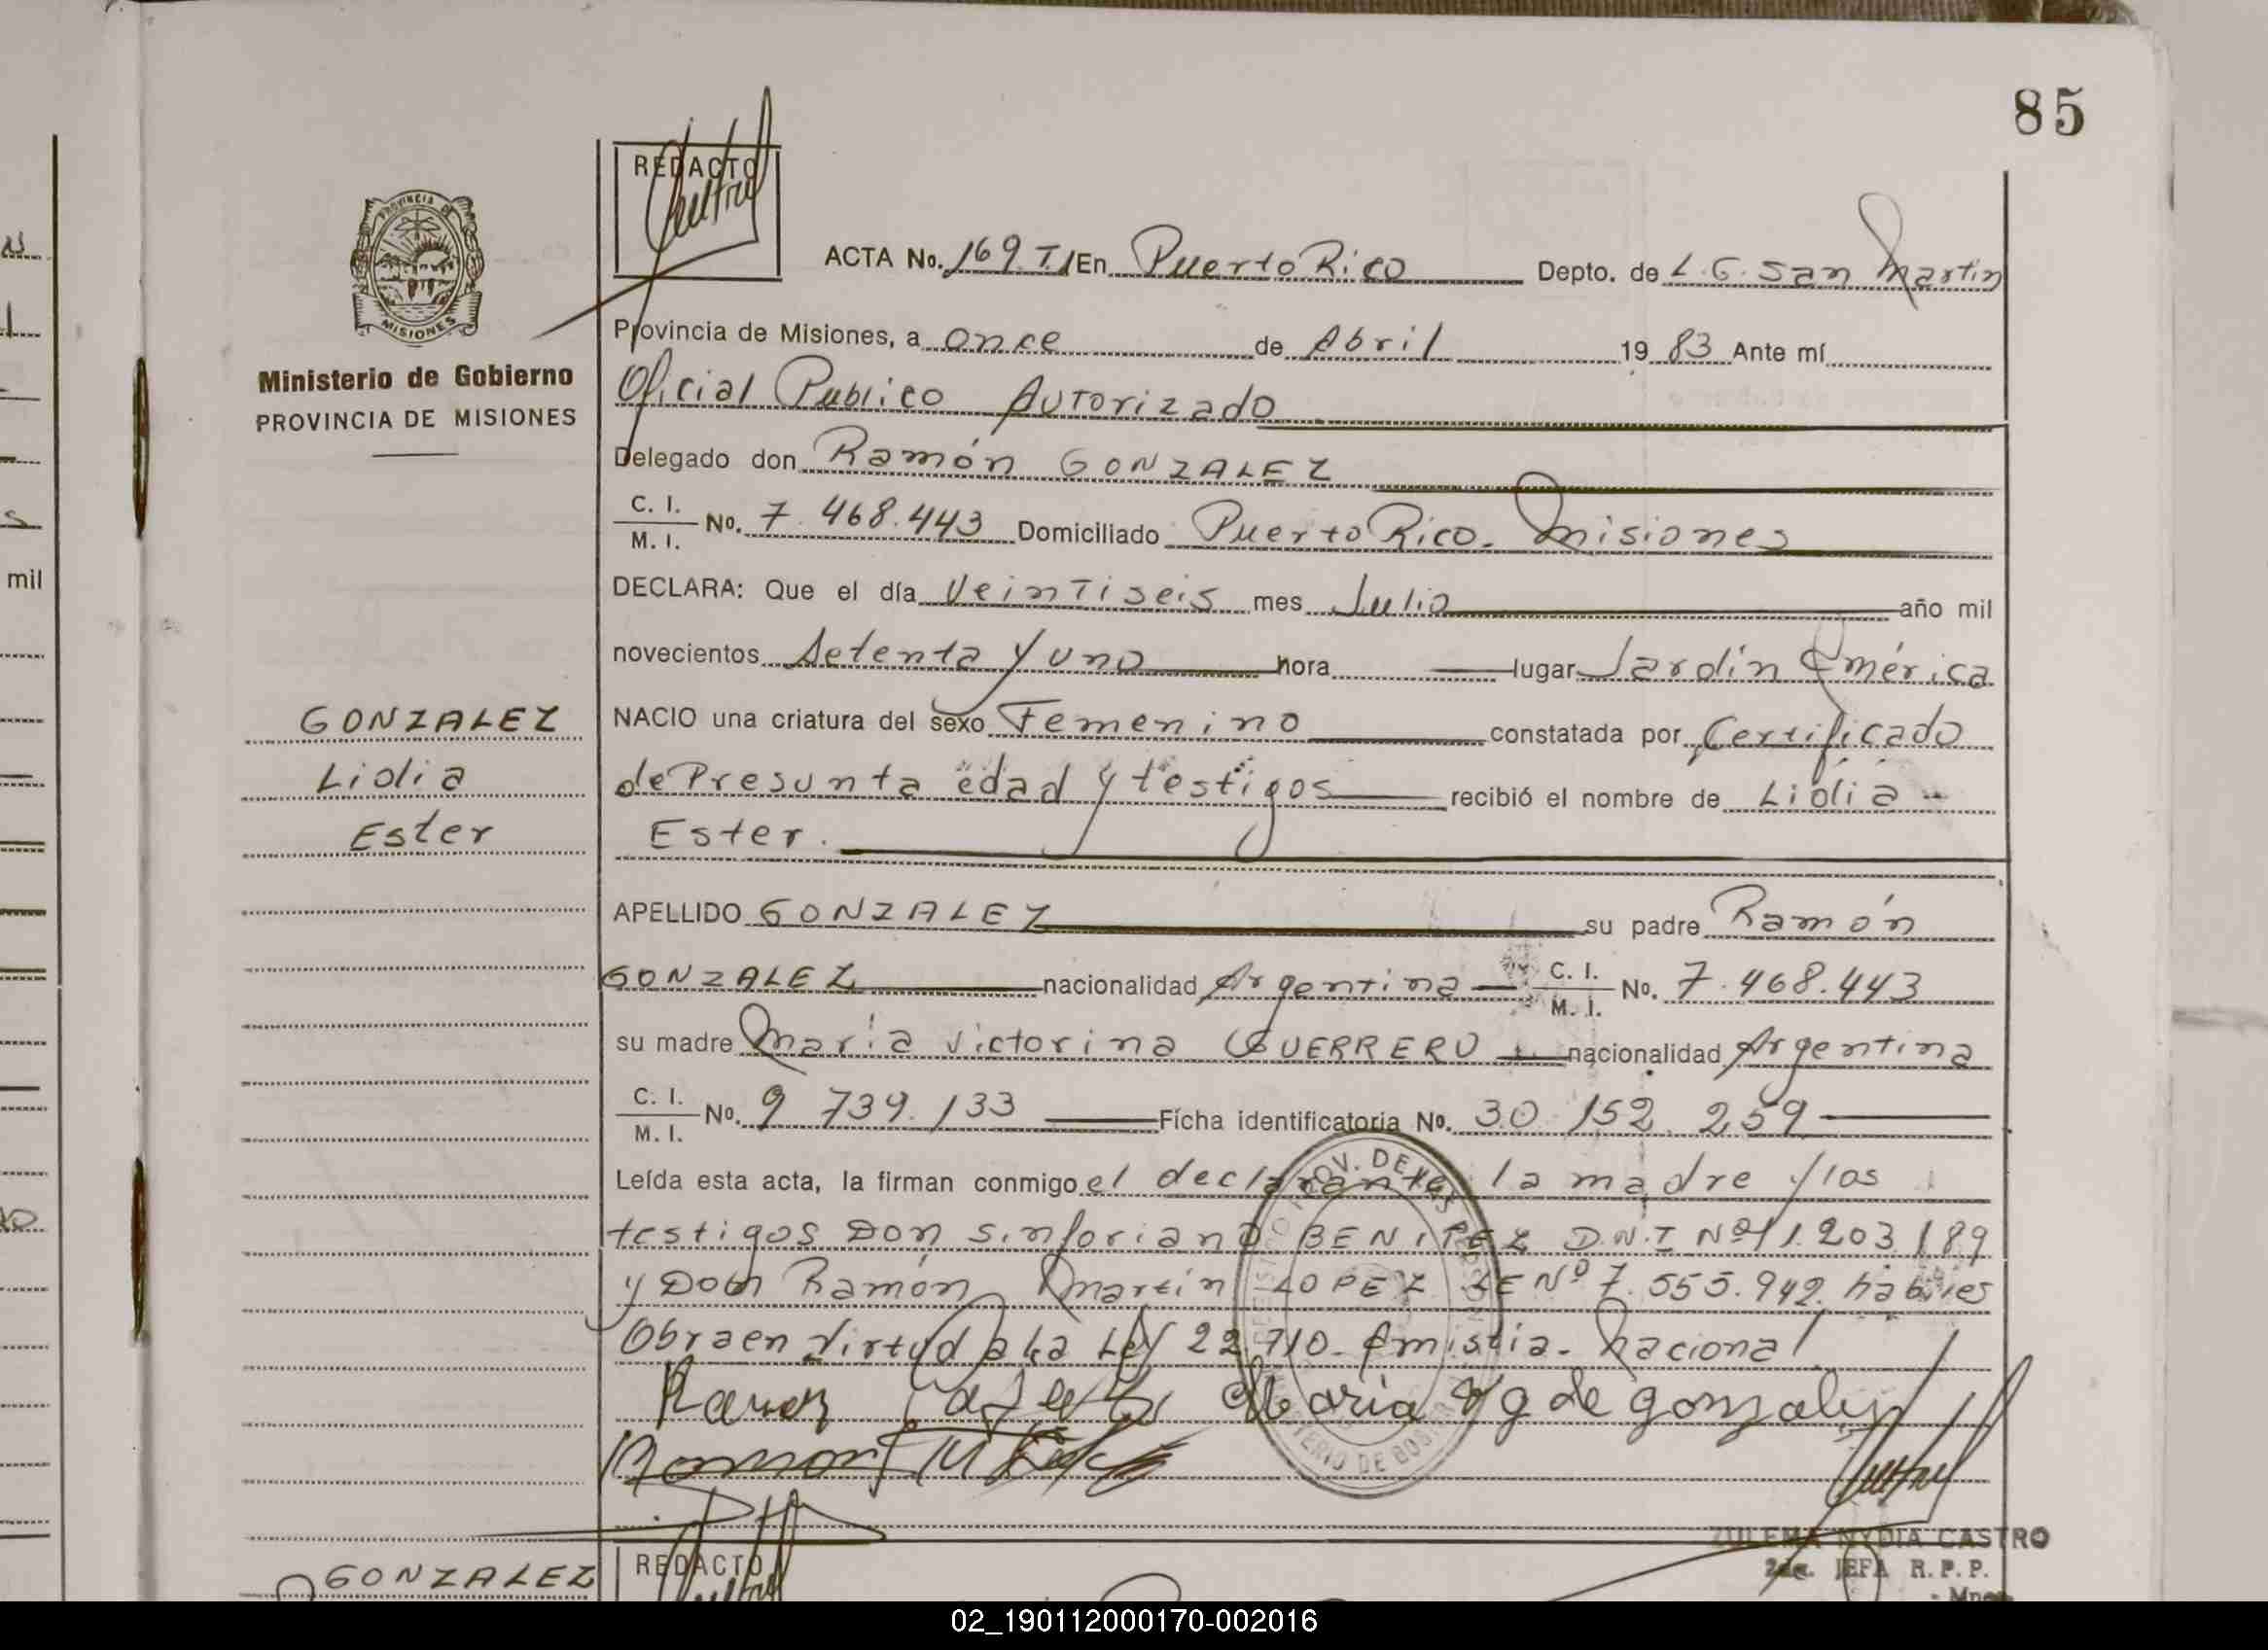 85
REDACTO
ACTA No. 169 T.I En Puerto Rico Depto. de L. G. San Martin
PROVINCIA DE MISIONES
Provincia de Misiones, a once de Abril 19 83 Ante mí
Ministerio de Gobierno
PROVINCIA DE MISIONES
Oficial Publico Autorizado
Delegado don Ramón GONZALEZ
C. I.
M. I. No. 7.468.443 Domiciliado Puerto Rico. Misiones
mil
DECLARA: Que el día Veintiseis mes Julio año mil
novecientos Setenta y uno hora lugar Jardín América
GONZALEZ
Lidia
Ester
NACIO una criatura del sexo Femenino constatada por Certificado
de Presunta edad y testigos recibió el nombre de Lidia
Ester.
APELLIDO GONZALEZ su padre Ramón
GONZALEZ nacionalidad Argentina C. I.
M. I. No. 7.468.443
su madre María Victorina GUERRERO nacionalidad Argentina
C. I.
M. I. No. 9 739.133 Ficha identificatoria No. 30 152.259
Leída esta acta, la firman conmigo el declarante, la madre y los
testigos Don Sinforiano BENITEZ D.N.I Nº 11.203.189
y Don Ramón Martín LOPEZ LE Nº 7.555.942. habiles
Obra en Virtud a la Ley 22.710. Amistia. Nacional
Maria V g de gonzalez
Ramon M
ZULEMA NYDIA CASTRO
2da. JEFA R. P. P.
GONZALEZ
REDACTO
02_190112000170-002016